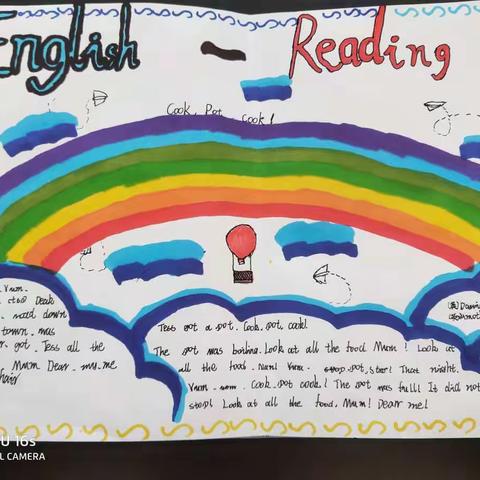 English
Reading
Cook, Pot, Cook!
Yum.
Desk
down
town. was
got. Tess all the
Mum Dear. me
hair
Tess got a pot. Cook. pot. cook!
The pot was boiling. Look at all the food Mum! Look at
all the food. Num! Yum. stop. pot. stop! That night.
Yum. num. Cook. pot. cook! The pot was full! It did not
stop! Look at all the food. Mum! Dear me!
U 16s
L CAMERA